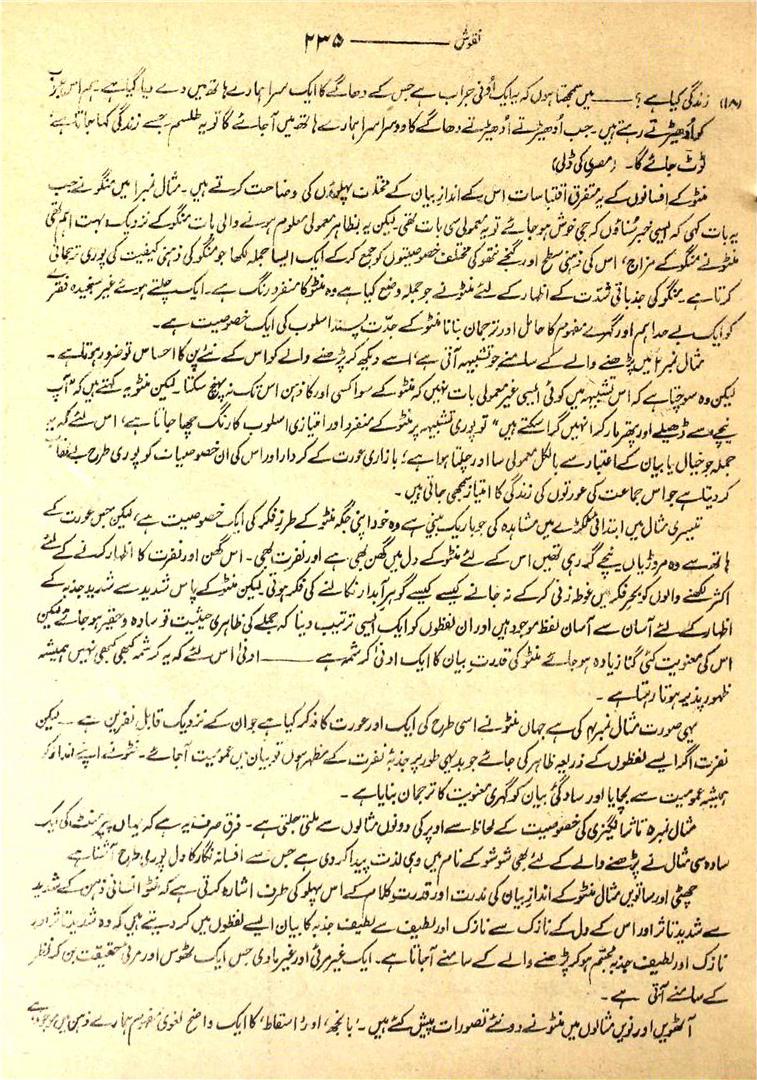 نقوش ——— ۲۳۵
(۱۸) زندگی کیا ہے؟ —— میں سمجھتا ہوں کہ یہ ایک اُونی جراب ہے جس کے دھاگے کا ایک سرا ہمارے ہاتھ میں دے دیا گیا ہے۔ ہم اس جراب
کو اُدھیڑتے رہتے ہیں۔ جب اُدھیڑتے اُدھیڑتے دھاگے کا دوسرا سرا ہمارے ہاتھ میں آجائے گا تو یہ طلسم، جسے زندگی کہا جاتا ہے
ٹوٹ جائے گا۔ (مصری کی ڈلی)
منٹو کے افسانوں کے یہ متفرق اقتباسات اس کے اندازِ بیان کے مختلف پہلوؤں کی وضاحت کرتے ہیں۔ مثال نمبر ۱ میں منگو نے جب
یہ بات کہی کہ ایسی خبر سُناؤں کہ جی خوش ہو جائے تو یہ معمولی سی بات تھی۔ لیکن یہ بظاہر معمولی معلوم ہونے والی بات منگو کے نزدیک بہت اہم تھی
منٹو نے منگو کے مزاج، اس کی ذہنی سطح اور گنجے نتھو کی مختلف خصوصیتوں کو جمع کر کے ایک ایسا جملہ لکھا جو منگو کی ذہنی کیفیت کی پوری ترجمانی
کرتا ہے۔ منگو کی جذباتی شدّت کے اظہار کے لئے منٹو نے جو جملہ وضع کیا ہے وہ منٹو کا منفرد رنگ ہے۔ ایک چلتے ہوئے غیر سنجیدہ فقرے
کو ایک بے حد اہم اور گہرے مفہوم کا حامل اور ترجمان بنانا منٹو کے جدّت پسند اسلوب کی ایک خصوصیت ہے۔
مثال نمبر ۲ میں پڑھنے والے کے سامنے جو تشبیہہ آتی ہے، اسے دیکھ کر پڑھنے والے کو اس کے نئے پن کا احساس تو ضرور ہوتا ہے۔
لیکن وہ سوچتا ہے کہ اس تشبیہہ میں کوئی ایسی غیر معمولی بات نہیں کہ منٹو کے سوا کسی اور کا ذہن اس تک نہ پہنچ سکتا۔ لیکن منٹو یہ کہتے ہیں کہ "آپ
نیچے سے ڈھیلے اور پتھر مار کر انہیں گرا سکتے ہیں" تو پوری تشبیہہ پر منٹو کے منفرد اور امتیازی اسلوب کا رنگ چھا جاتا ہے، اس لئے کہ یہ
جملہ جو خیال یا بیان کے اعتبار سے بالکل معمولی سا اور چلتا ہوا ہے؛ بازاری عورت کے کردار اور اس کی ان خصوصیات کو پوری طرح بے نقاب
کر دیتا ہے جو اس جماعت کی عورتوں کی زندگی کا امتیاز سمجھی جاتی ہیں۔
تیسری مثال میں ابتدائی ٹکڑے میں مشاہدہ کی جو باریک بینی ہے وہ خود اپنی جگہ منٹو کے طرزِ فکر کی ایک خصوصیت ہے، لیکن جس عورت کے
ہاتھ سے وہ مروڑیاں نیچے گر رہی تھیں اس کے لئے منٹو کے دل میں گھن بھی ہے اور نفرت بھی۔ اس گھن اور نفرت کا اظہار کرنے کے لئے
اکثر لکھنے والوں کو بحرِ فکر میں غوطہ زنی کر کے نہ جانے کیسے کیسے گوہر آبدار نکالنے کی فکر ہوتی لیکن منٹو کے پاس شدید سے شدید جذبہ کے
اظہار کے لئے آسان سے آسان لفظ موجود ہیں اور ان لفظوں کو ایک ایسی ترتیب دینا کہ جملے کی ظاہری حیثیت تو سادہ و حقیر ہو جائے لیکن
اس کی معنویت کئی گنا زیادہ ہو جائے منٹو کی قدرتِ بیان کا ایک ادنیٰ کرشمہ ہے —— ادنیٰ اس لئے کہ یہ کرشمہ کبھی کبھی نہیں ہمیشہ
ظہور پذیر ہوتا رہتا ہے۔
یہی صورت مثال نمبر ۴ کی ہے جہاں منٹو نے اسی طرح کی ایک اور عورت کا ذکر کیا ہے جو ان کے نزدیک قابلِ نفرین ہے۔ لیکن
نفرت اگر ایسے لفظوں کے ذریعہ ظاہر کی جائے جو بدیہی طور پر جذبۂ نفرت کے مظہر ہوں تو بیان میں عمومیت آجائے۔ منٹو نے اپنے انداز کو
ہمیشہ عمومیت سے بچایا اور سادگیٔ بیان کو گہری معنویت کا ترجمان بنایا ہے۔
مثال نمبر ۵ تاثر انگیزی کی خصوصیت کے لحاظ سے اوپر کی دونوں مثالوں سے ملتی جلتی ہے۔ فرق صرف یہ ہے کہ یہاں پیپرمنٹ کی ایک
سادہ سی مثال نے پڑھنے والے کے لئے بھی شوشو کے نام میں وہی لذت پیدا کر دی ہے جس سے افسانہ نگار کا دل پوری طرح آشنا ہے
چھٹی اور ساتویں مثال منٹو کے اندازِ بیان کی ندرت اور قدرتِ کلام کے اس پہلو کی طرف اشارہ کرتی ہے کہ منٹو انسانی ذہن کے شدید
سے شدید تاثر اور اس کے دل کے نازک سے نازک اور لطیف سے لطیف جذبہ کا بیان ایسے لفظوں میں کر دیتے ہیں کہ وہ شدید تاثر اور
نازک اور لطیف جذبہ مجسم ہو کر پڑھنے والے کے سامنے آجاتا ہے۔ ایک غیر مرئی اور غیر مادی حِس ایک ٹھوس اور مرئی حقیقت بن کر نظر
کے سامنے آتی ہے۔
آٹھویں اور نویں مثالوں میں منٹو نے دو نئے تصورات پیش کئے ہیں۔ 'بانجھ' اور 'اسقاط' کا ایک واضح لغوی مفہوم ہمارے ذہن میں موجود ہے